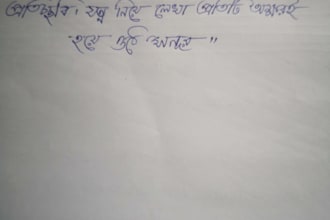 প্রতিচ্ছবি। যত্ন নিয়ে লেখা প্রতিটি অক্ষরই
হয়ে ওঠে অনন্য "